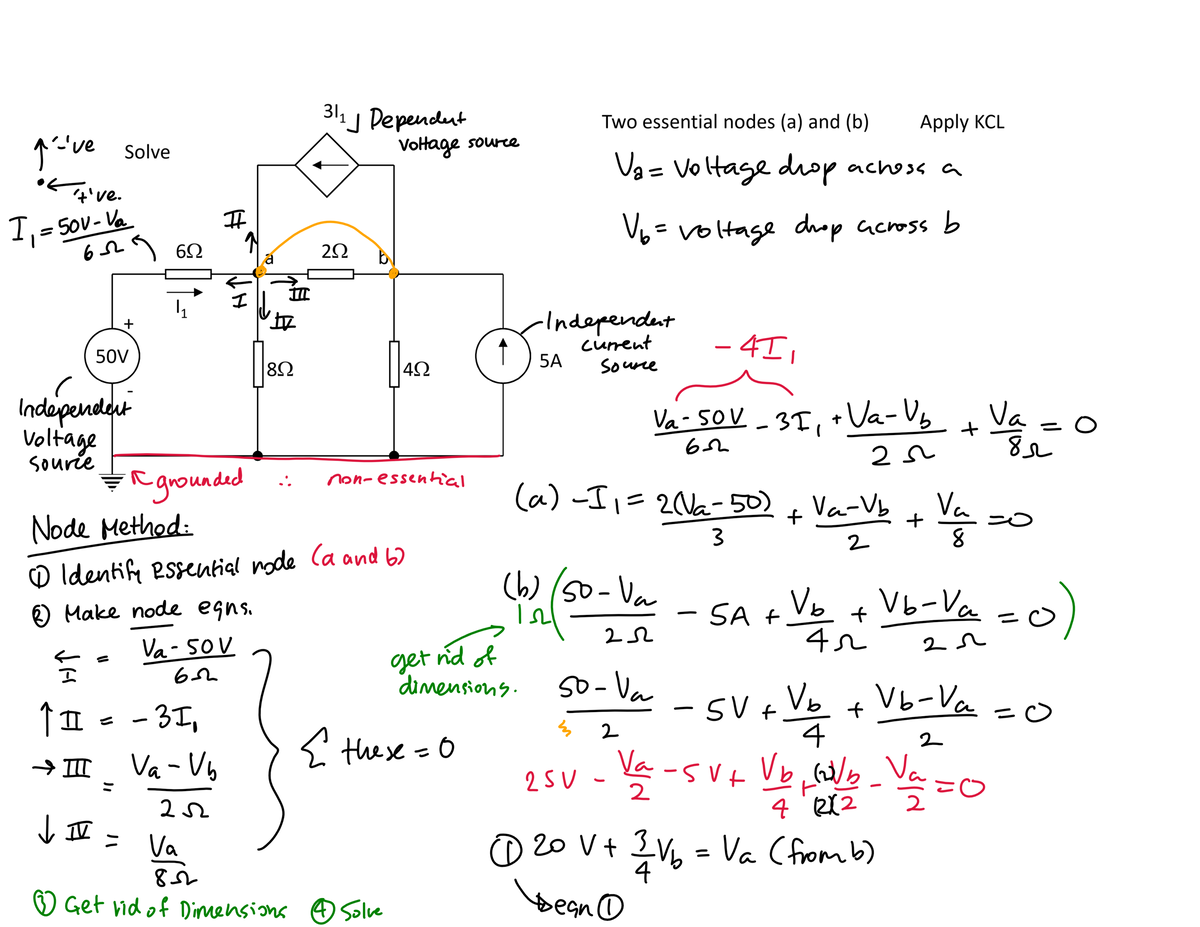 3I₁ Dependent
voltage source
Two essential nodes (a) and (b) Apply KCL
Va = Voltage drop across a
Vb = voltage drop across b
'-'ve
Solve
'+'ve.
I₁ = 50V - Va
6Ω
II
6Ω
a
2Ω
b
I₁
I
III
IV
+
50V
-
8Ω
4Ω
5A
Independent
current
source
Independent
Voltage
source
grounded ∴ non-essential
- 4I₁
Va - 50V / 6Ω - 3I₁ + Va - Vb / 2Ω + Va / 8Ω = 0
(a) -I₁ = 2(Va - 50) / 3 + Va - Vb / 2 + Va / 8 = 0
Node Method:
① Identify Essential node (a and b)
② Make node eqns.
← I = Va - 50V / 6Ω
↑ II = - 3I₁
→ III = Va - Vb / 2Ω
↓ IV = Va / 8Ω
Σ these = 0
③ Get rid of Dimensions ④ Solve
(b) 1Ω ( 50 - Va / 2Ω - 5A + Vb / 4Ω + Vb - Va / 2Ω = 0 )
get rid of
dimensions.
50 - Va / 2 - 5V + Vb / 4 + Vb - Va / 2 = 0
25V - Va / 2 - 5V + Vb / 4 + (2)Vb / (2)2 - Va / 2 = 0
① 20 V + 3/4 Vb = Va (from b)
eqn ①